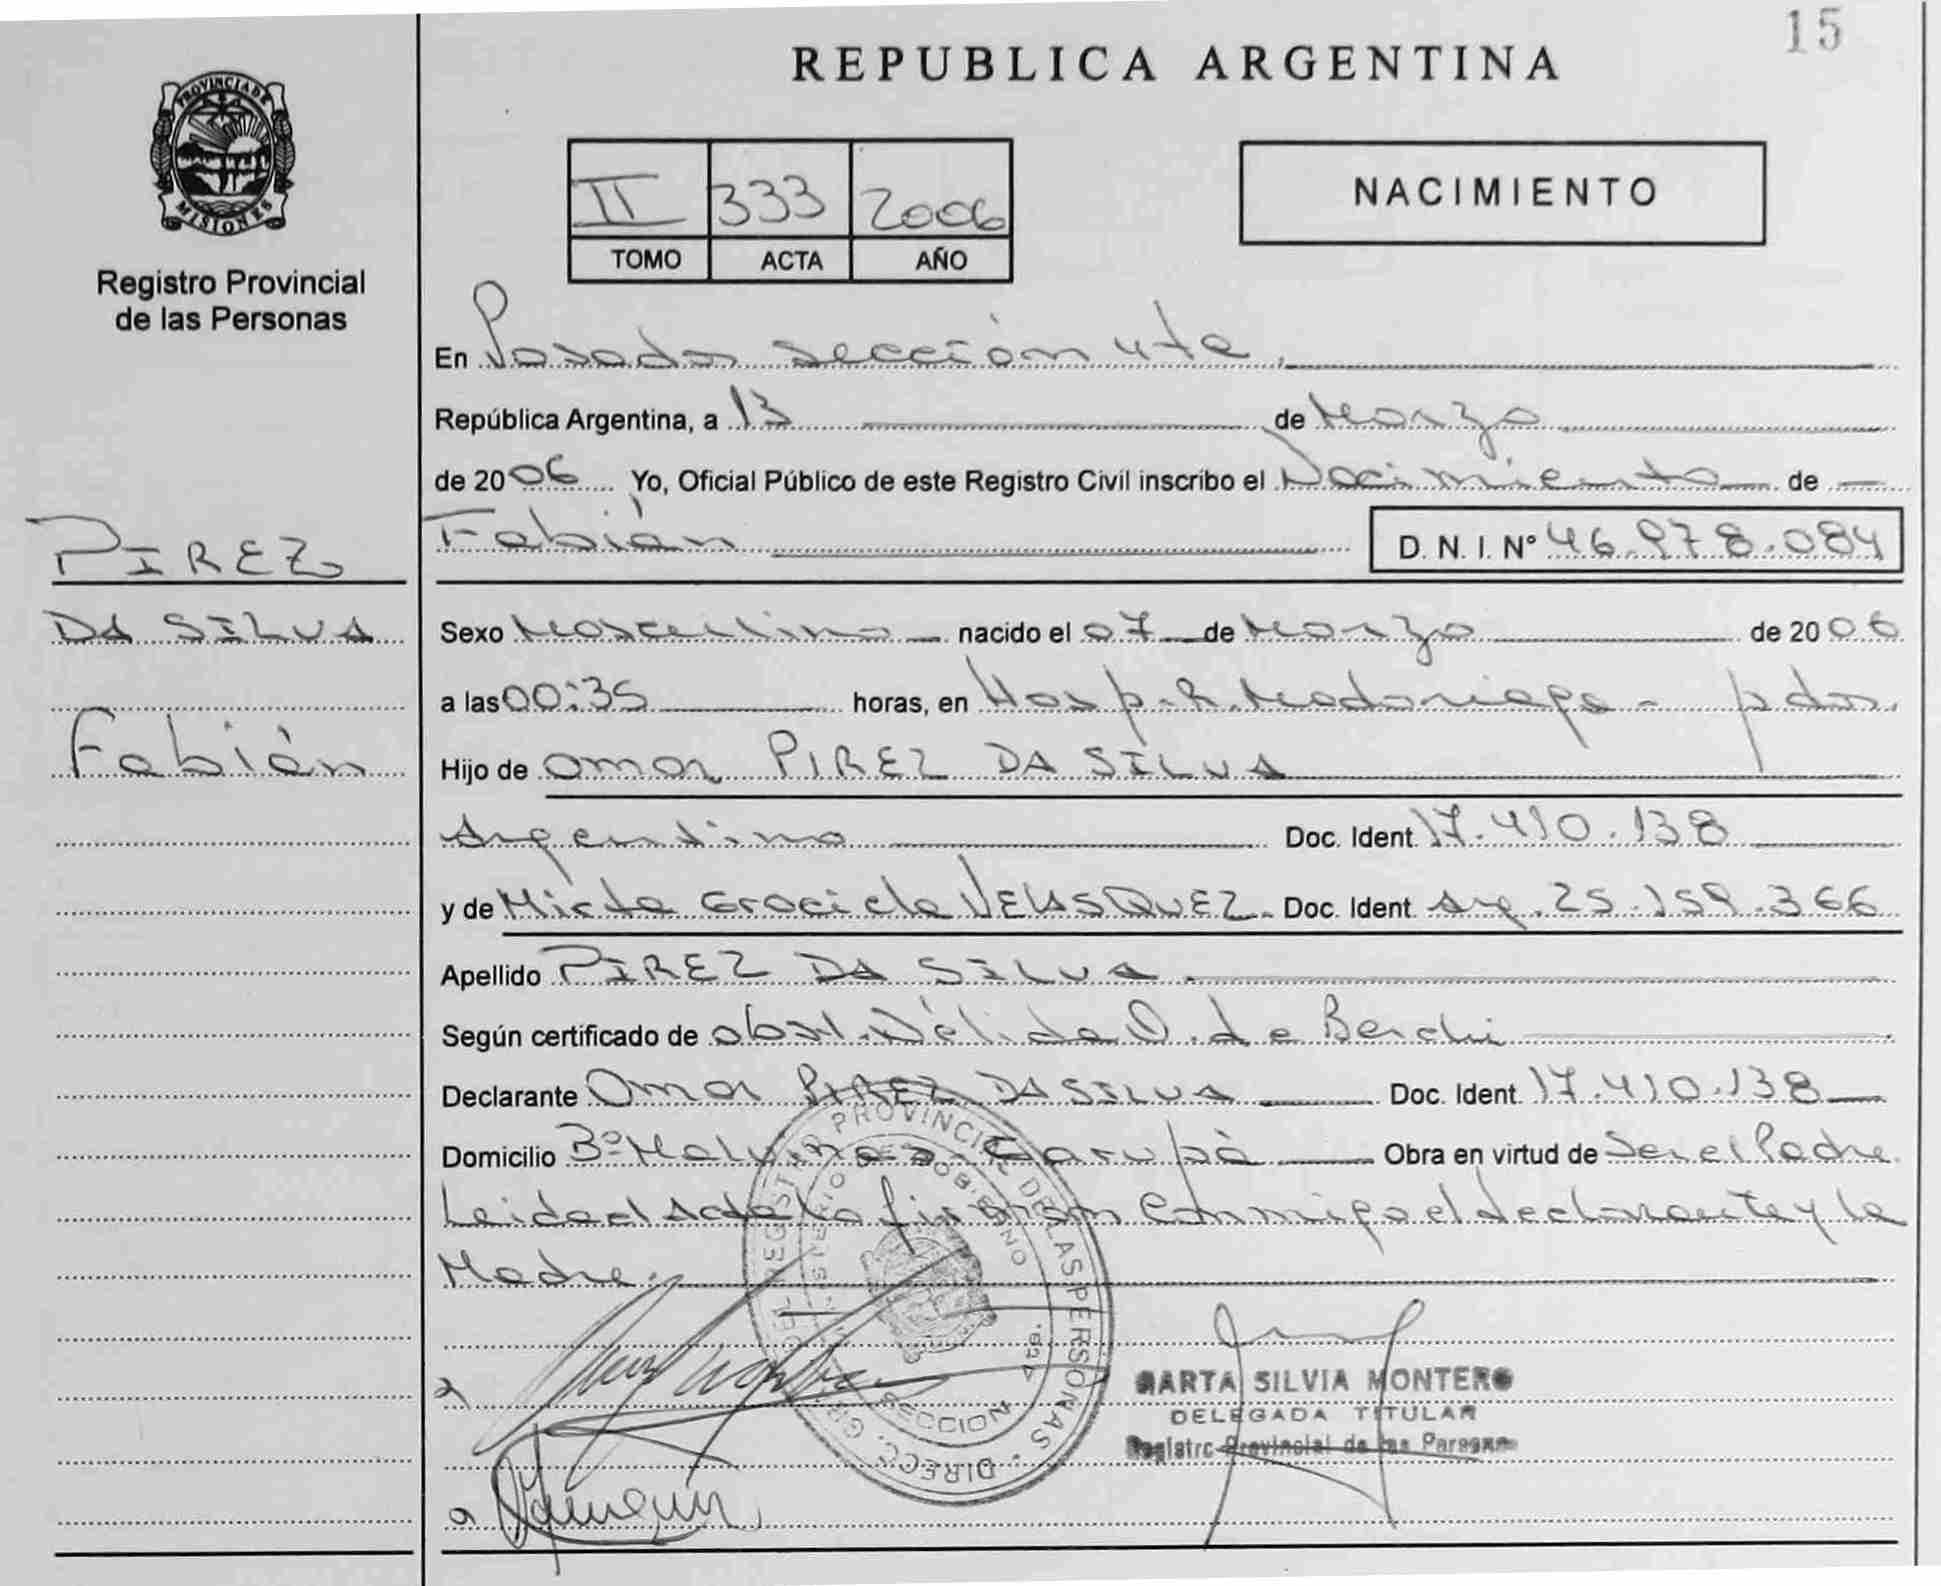 15
REPUBLICA ARGENTINA
PROVINCIA DE MISIONES
Registro Provincial
de las Personas
II 333 2006
TOMO ACTA AÑO
NACIMIENTO
En Posadas sección 4ta.
República Argentina, a 13 de Marzo
de 2006 Yo, Oficial Público de este Registro Civil inscribo el Nacimiento de
Fabián D. N. I. Nº 46.978.084
PIREZ
DA SILVA
Fabián
Sexo Masculino nacido el 07 de Marzo de 2006
a las 00:35 horas, en Hosp. R. Madariaga - pdas.
Hijo de Omar PIREZ DA SILVA
Argentino Doc. Ident. 17.410.138
y de Mirta Graciela VELASQUEZ Doc. Ident. Arg. 25.159.366
Apellido PIREZ DA SILVA.
Según certificado de obst. Nélida O. de Berchi
Declarante Omar PIREZ DA SILVA Doc. Ident. 17.410.138
Domicilio Bº Malvinas - Garupá Obra en virtud de Ser el Padre.
Leida el Acta la firman conmigo el declarante y la
Madre.
REGISTRO PROVINCIAL DE LAS PERSONAS
SECCION
MARTA SILVIA MONTERO
DELEGADA TITULAR
Registro Provincial de las Personas